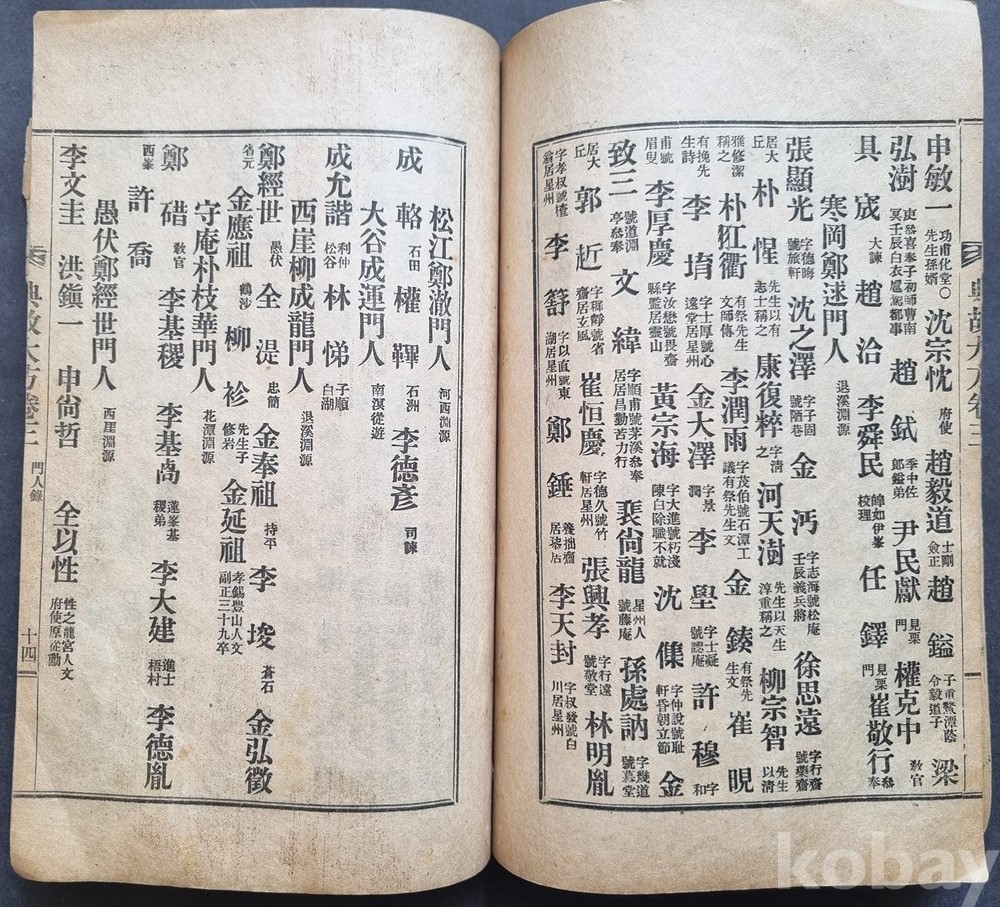 申敏一 功甫化堂○先生孫婿 沈宗忱 府使 趙毅道 士剛僉正 趙 鎰 子重鰲潭蔭令毅道子 梁
弘澍 趙 軾 季中佐郎鎰弟 尹民獻 見栗門 權克中 教官
具 宬 大諫 趙 洽 李舜民 校理 任 鐸 見栗門 崔敬行 參奉
寒岡鄭逑門人 退溪淵源
張顯光 字德晦號旅軒 沈之澤 字子固號陋巷 金 沔 字志海號松庵壬辰義兵將 徐思遠 字行甫號樂齋
居大丘 朴 惺 先生以有志士稱之 康復粹 字淸之 河天澍 先生以天生淳重稱之 柳宗智 先生以淸
雅修潔稱之 朴而衝 有祭先生文師傅 李潤雨 字茂伯號石潭工議有祭先生文 金 鍊 有祭先生文 崔 晛
有挽先生詩 李 堉 字士厚號心遠堂居星州 金大澤 字景潤 李 㙉 字士凝號認庵 許 穆 字和
甫號眉叟 李厚慶 字汝懋號畏齋縣監居靈山 黃宗海 字大進號朽淺陳白除職不就 沈 㒒 字仲說號耻軒昏朝立節 金
致三 號道淵亭參奉 文 緯 字順甫號茅溪參奉居居昌勤苦力行 裴尙龍 星州人號藤庵 孫處訥 字幾道號慕堂
居大丘 郭 近 字穉靜號省齋居玄風 崔恒慶 字德久號竹軒居星州 張興孝 字行遠號敬堂 林明胤
字孝叔號楂翁居星州 李 䈕 字以直號東湖居星州 鄭 錘 號養拙齋居 李天封 字叔發號白川居星州
松江鄭澈門人 河西淵源
成 輅 石田 權 韠 石洲 李德彦 司諫
大谷成運門人 南溟從遊
成允諧 利仲松谷 林 悌 子順白湖
西崖柳成龍門人 退溪淵源
鄭經世 愚伏 全 湜 忠簡 金奉祖 持平 李 埈 蒼石 金弘徵
省元 金應祖 鶴沙 柳 袗 先生子修岩 金延祖 孝錫豊山人文副正三十九卒
守庵朴枝華門人 花潭淵源
鄭 碏 敎官 李基稷 李基卨 蓮峯基稷弟 李大建 進士梧村 李德胤
西峯 許 喬
愚伏鄭經世門人 西厓淵源
李文圭 洪鎭一 申尙哲 全以性 性之龍宮人文府使原從勳
典故大方卷三 門人錄 十四
典故大方卷三
kobay